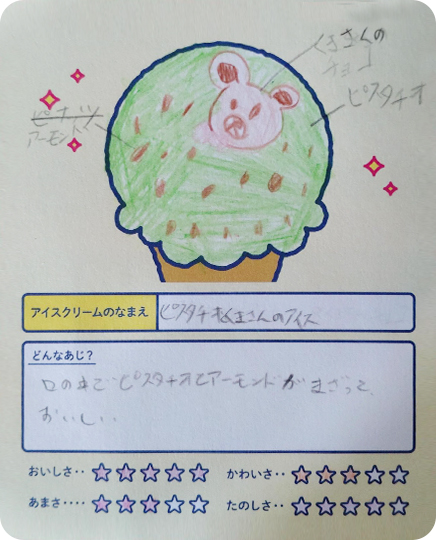 くまさんの
チョコ
ピスタチオ
ピーナッツ
アーモンド
アイスクリームのなまえ
ピスタチオくまさんのアイス
どんなあじ？
口の中でピスタチオとアーモンドがまざって、
おいしい。
おいしさ‥
かわいさ‥
あまさ‥‥
たのしさ‥